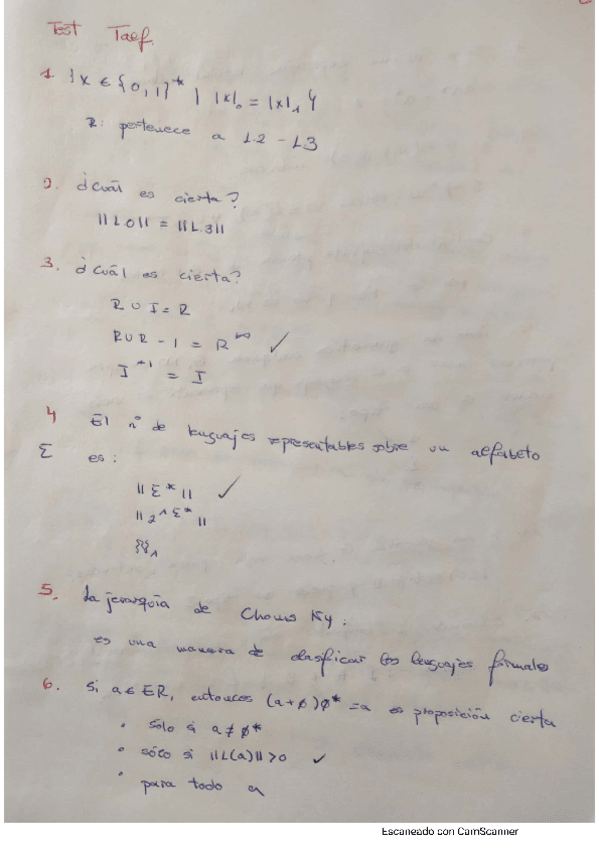 Test Taef.
1. {x ∈ {0,1}* | |x|₀ = |x|₁}
R: pertenece a L.2 - L3
2. ¿Cuál es cierta?
||L.0|| = ||L.3||
3. ¿Cuál es cierta?
R ∪ I = R
R ∪ R⁻¹ = R^∞ ✓
I⁻¹ = I
4 El nº de lenguajes representables sobre un alfabeto
Σ es:
||Σ*|| ✓
||2^Σ*||
5. La jerarquía de Chomsky:
es una manera de clasificar los lenguajes formales
6. Si a ∈ ER, entonces (a+∅)∅* = a es proposición cierta
· sólo si a ≠ ∅*
· sólo si ||L(a)|| > 0 ✓
· para todo a
Escaneado con CamScanner